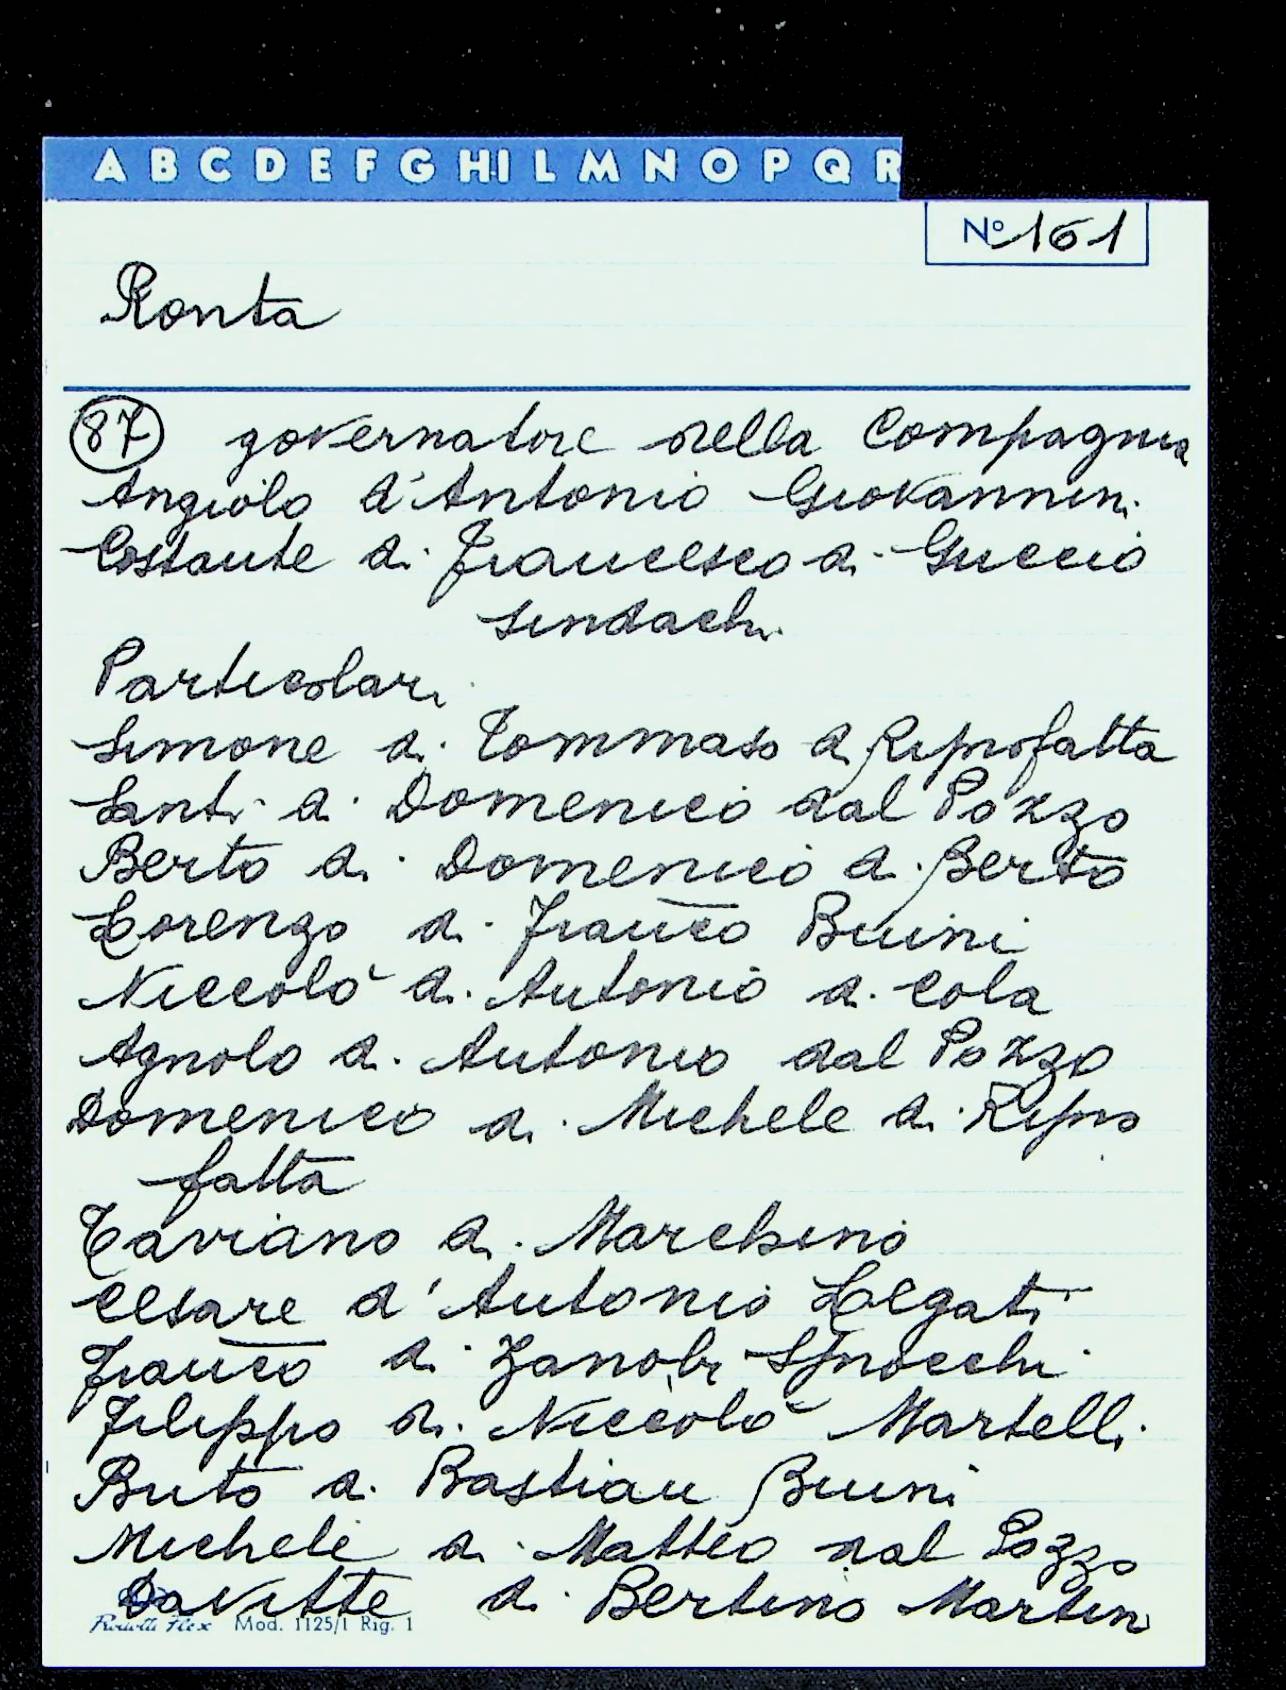 A B C D E F G HI L M N O P Q R
Nº 161
Ronta
87 governatore della Compagnia
Angiolo d'Antonio Giovannini
Costante di Francesco di Guccio
sindachi
Particolari
Simone di Tommaso di Riprofatta
Santi di Domenico dal Pozzo
Berto di Domenico di Berto
Lorenzo di Franco Buini
Niccolò di Antonio di Cola
Agnolo di Antonio dal Pozzo
Domenico di Michele di Ripro
fatta
Taviano di Marchino
Cesare d'Antonio Legati
Franco di Zanobi Spnocchi
Filippo di Niccolò Martelli
Buto di Bastian Buini
Michele di Matteo dal Pozzo
Davitte di Bertino Martin
Mod. 1125/1 Rig. 1